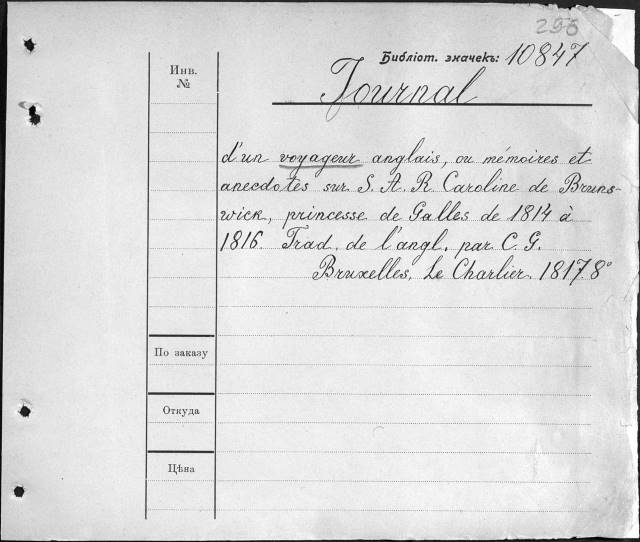 296
Библіот. значекъ: 10847
Инв.
№
Journal
d'un voyageur anglais, ou mémoires et
anecdotes sur S. A. R. Caroline de Bruns-
wick, princesse de Galles de 1814 à
1816. Trad. de l'angl. par C. G.
Bruxelles, Le Charlier. 1817. 8°
По заказу
Откуда
Цѣна